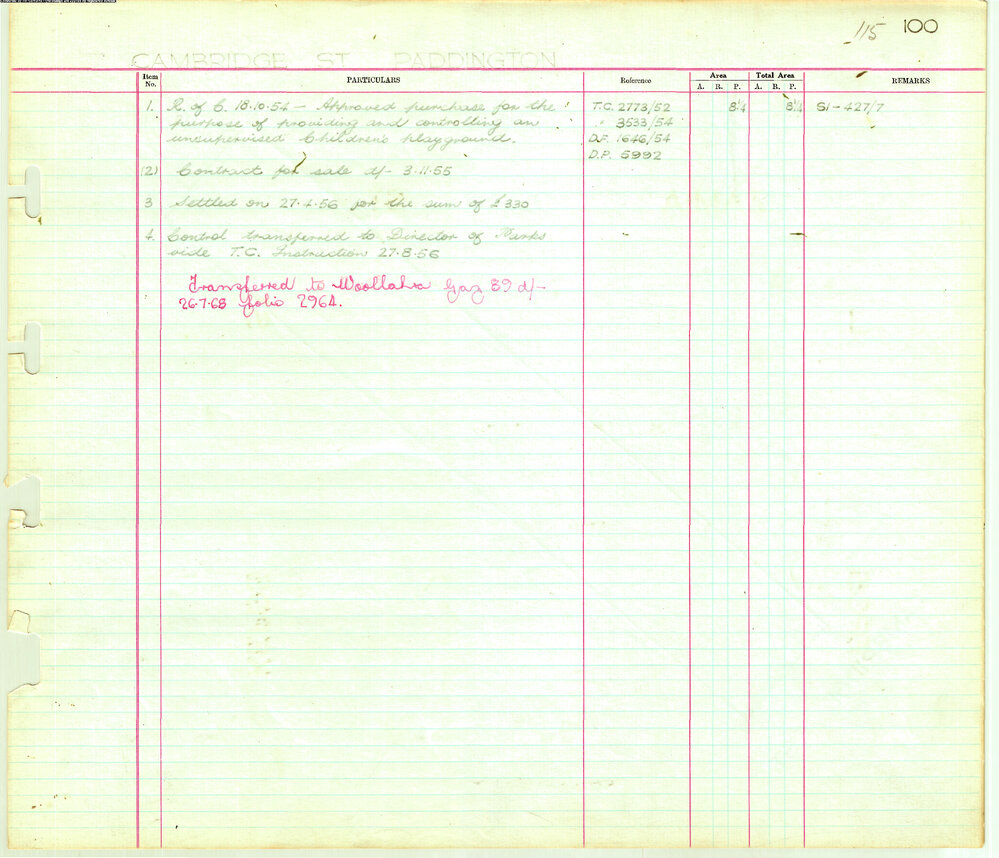 115 100
CAMBRIDGE ST. PADDINGTON
Item No. PARTICULARS Reference Area Total Area REMARKS
A. R. P. A. R. P.
1. R. of C. 18.10.54 – Approved purchase for the T.C. 2773/52 8¼ 8¼ S1-427/7
purpose of providing and controlling an " 3533/54
unsupervised Children's playground. D.F. 1646/54
D.P. 5992
(2) Contract for sale d/- 3.11.55
3 Settled on 27.4.56 for the sum of £330
4. Control transferred to Director of Parks
vide T.C. Instruction 27.8.56
Transferred to Woollahra Gaz 89 d/-
26.7.68 folio 2964.